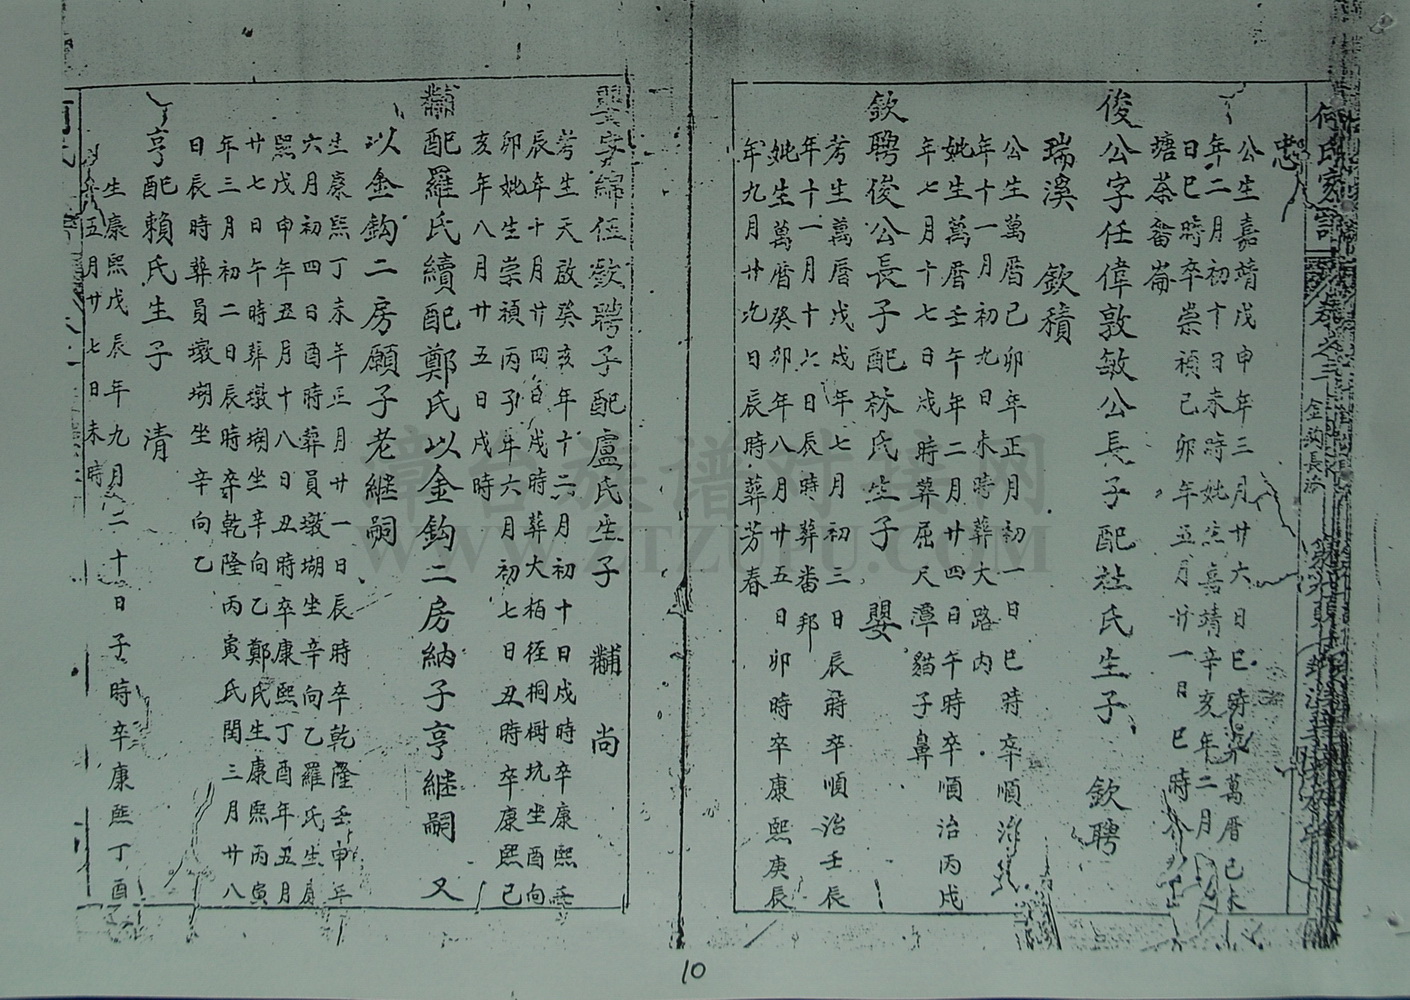 何氏家譜
卷之三
金鈎長派
忠
公生嘉靖戊申年三月廿六日巳時卒萬曆己未
年二月初十日未時妣生嘉靖辛亥年二月
日巳時卒崇禎己卯年五月廿一日巳時
塘蔡畬崙
俊公字任偉敦敏公長子配杜氏生子 欽聘
瑞溪 欽積
公生萬曆己卯年正月初一日巳時卒順治
年十一月初九日未時葬大路内
妣生萬曆壬午年二月廿四日午時卒順治丙戌
年七月十七日戌時葬屈尺潭貓子鼻
欽聘俊公長子配林氏生子 嬰
考生萬曆戊戌年七月初三日辰時卒順治壬辰
年十一月十六日辰時葬畬邦
妣生萬曆癸卯年八月廿五日卯時卒康熙庚辰
年九月廿六日辰時葬芳春
字綿伍欽聘子配盧氏生子 黼 尚
考生天啟癸亥年十二月初十日戌時卒康熙壬
辰年十月廿四日戌時葬大栢徑桐樹坑坐酉向
卯妣生崇禎丙子年六月初七日丑時卒康熙己
亥年八月廿五日戌時
黼配羅氏續配鄭氏以金鈎二房納子亨継嗣 又
以金鈎二房願子老継嗣
生康熙丁未年正月廿一日辰時卒乾隆壬申年
六月初四日酉時葬員墩坳坐辛向乙羅氏生康
熙戊申年五月十八日丑時卒康熙丁酉年五月
廿七日午時葬墩坳坐辛向乙鄭氏生康熙丙寅
年三月初二日辰時卒乾隆丙寅氏閏三月廿八
日辰時葬員墩坳坐辛向乙
亨配賴氏生子 清
生康熙戊辰年九月二十日子時卒康熙丁酉
五月廿七日未時
漳台族谱对接网
WWW.ZTZUPU.COM
10